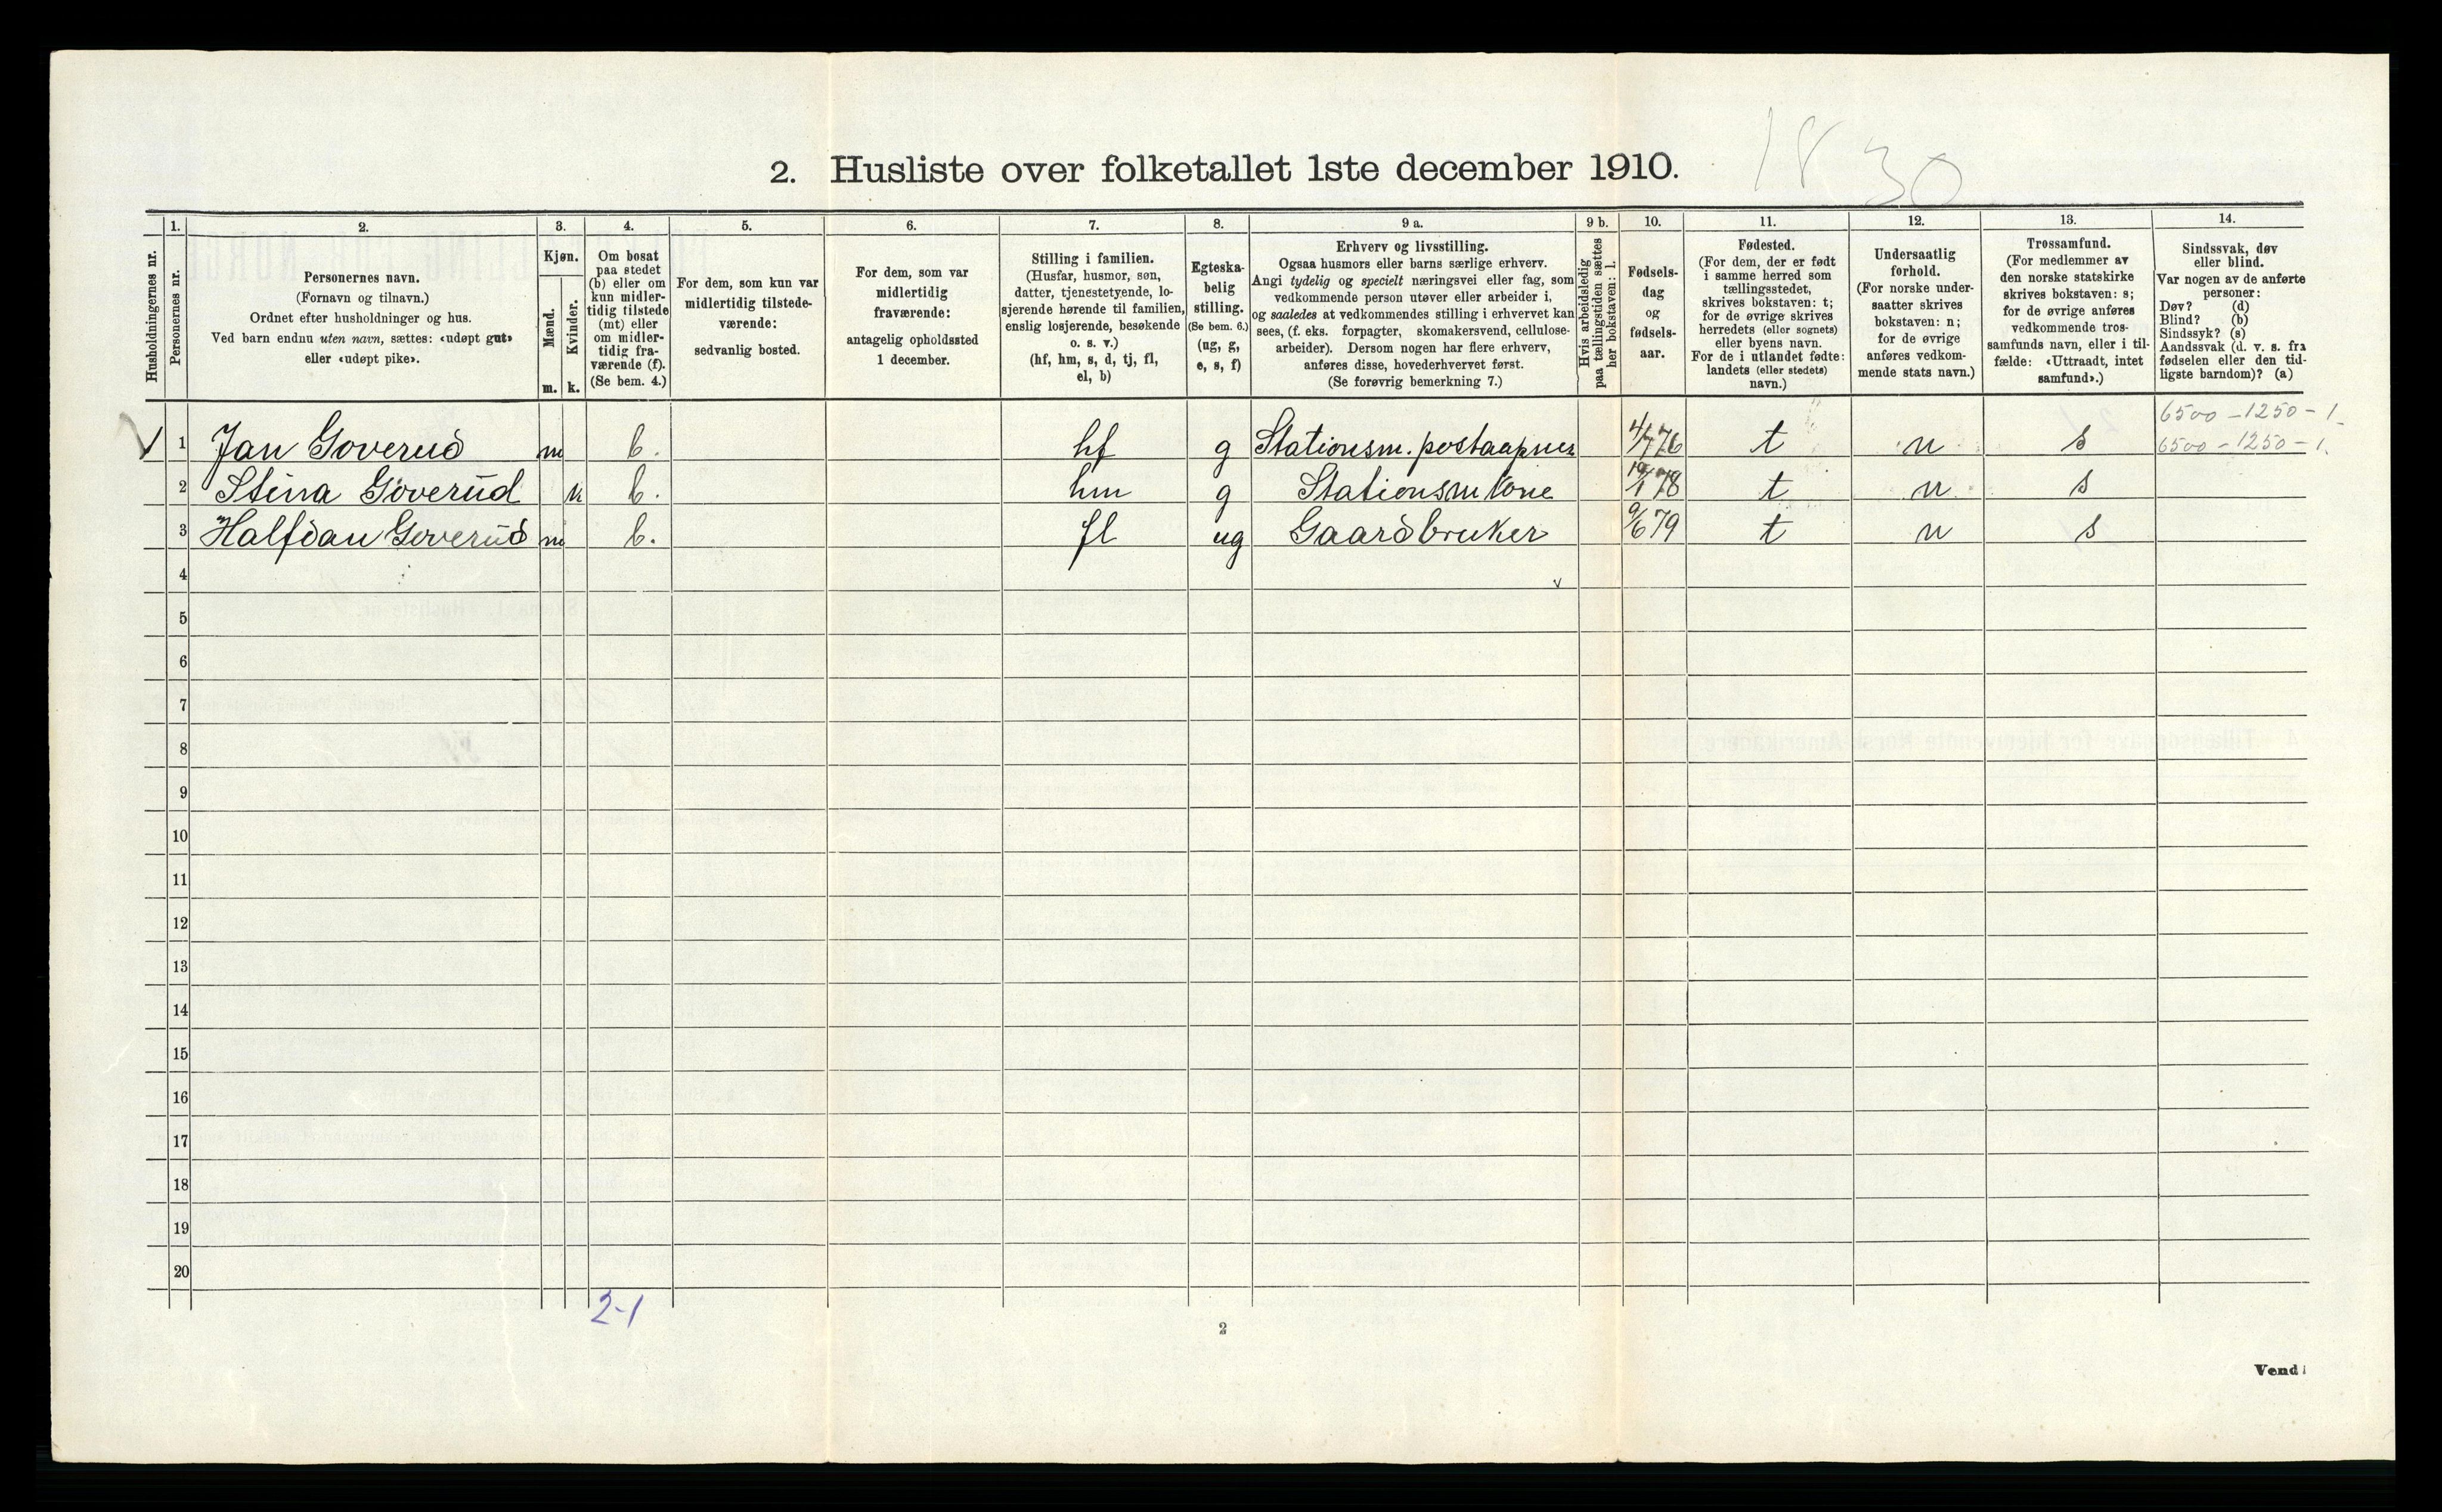 18 30
2. Husliste over folketallet 1ste december 1910.
Husholdningernes nr.
1.
Personernes nr.
2.
Personernes navn.
(Fornavn og tilnavn.)
Ordnet efter husholdninger og hus.
Ved barn endnu uten navn, sættes: «udøpt gut»
eller «udøpt pike».
3.
Kjøn.
Mænd.
m.
Kvinder.
k.
4.
Om bosat
paa stedet
(b) eller om
kun midler-
tidig tilstede
(mt) eller
om midler-
tidig fra-
værende (f).
(Se bem. 4.)
5.
For dem, som kun var
midlertidig tilstede-
værende:
sedvanlig bosted.
6.
For dem, som var
midlertidig
fraværende:
antagelig opholdssted
1 december.
7.
Stilling i familien.
(Husfar, husmor, søn,
datter, tjenestetyende, lo-
sjerende hørende til familien,
enslig losjerende, besøkende
o. s. v.)
(hf, hm, s, d, tj, fl,
el, b)
8.
Egteska-
belig
stilling.
(Se bem. 6.)
(ug, g,
e, s, f)
9 a.
Erhverv og livsstilling.
Ogsaa husmors eller barns særlige erhverv.
Angi tydelig og specielt næringsvei eller fag, som
vedkommende person utøver eller arbeider i,
og saaledes at vedkommendes stilling i erhvervet kan
sees, (f. eks. forpagter, skomakersvend, cellulose-
arbeider). Dersom nogen har flere erhverv,
anføres disse, hovederhvervet først.
(Se forøvrig bemerkning 7.)
9 b.
Hvis arbeidsledig
paa tællingstiden sættes
her bokstaven: l.
10.
Fødsels-
dag
og
fødsels-
aar.
11.
Fødested.
(For dem, der er født
i samme herred som
tællingsstedet,
skrives bokstaven: t;
for de øvrige skrives
herredets (eller sognets)
eller byens navn.
For de i utlandet fødte:
landets (eller stedets)
navn.)
12.
Undersaatlig
forhold.
(For norske under-
saatter skrives
bokstaven: n;
for de øvrige
anføres vedkom-
mende stats navn.)
13.
Trossamfund.
(For medlemmer av
den norske statskirke
skrives bokstaven: s;
for de øvrige anføres
vedkommende tros-
samfunds navn, eller i til-
fælde: «Uttraadt, intet
samfund».)
14.
Sindssvak, døv
eller blind.
Var nogen av de anførte
personer:
Døv? (d)
Blind? (b)
Sindssyk? (s)
Aandssvak (d. v. s. fra
fødselen eller den tid-
ligste barndom)? (a)
6500 - 1250 - 1
1 Jan Goverud m b. hf g Stationsm. postaapner 4/7 76 t n s 6500 - 1250 - 1.
2 Stina Goverud k b. hm g Stationsm kone 78 t n s
3 Halfdan Goverud m b. fl ug Gaardbruker 9/6 79 t n s
4
5
6
7
8
9
10
11
12
13
14
15
16
17
18
19
20
2-1
2
Vend!